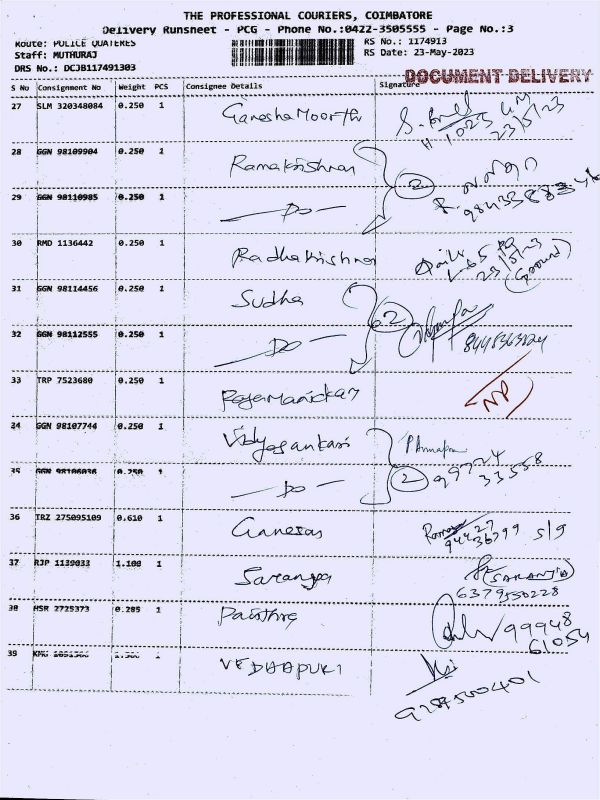 THE PROFESSIONAL COURIERS, COIMBATORE
Delivery Runsheet - PCG - Phone No.:0422-3505555 - Page No.:3
Route: POLICE QUATERES
RS No.: 1174913
Staff: MUTHURAJ
RS Date: 23-May-2023
DRS No.: DCJB117491303
DOCUMENT DELIVERY
S No Consignment No Weight PCS Consignee Details Signature
27 SLM 320348084 0.250 1 Ganesha Moorthi
23/5/23
28 GGN 98109904 0.250 1 Ramakrishnan
2
29 GGN 98110985 0.250 1 — Do —
30 RMD 1136442 0.250 1 Radhakrishnan
23/5/23
(Ground)
31 GGN 98114456 0.250 1 Sudha
2
32 GGN 98112555 0.250 1 — Do —
33 TRP 7523680 0.250 1 Rajamanickam
NP
34 GGN 98107744 0.250 1 Vidyasankari
99724
33558
2
35 GGN 98106036 0.250 1 — Do —
36 TRZ 275095109 0.610 1 Ganesan
94427
36799 S/9
37 RJP 1139033 1.100 1 Saranya
(SARANYA)
6379550228
38 HSR 2725373 0.285 1
99948
61054
39 1 VEDHAPURI